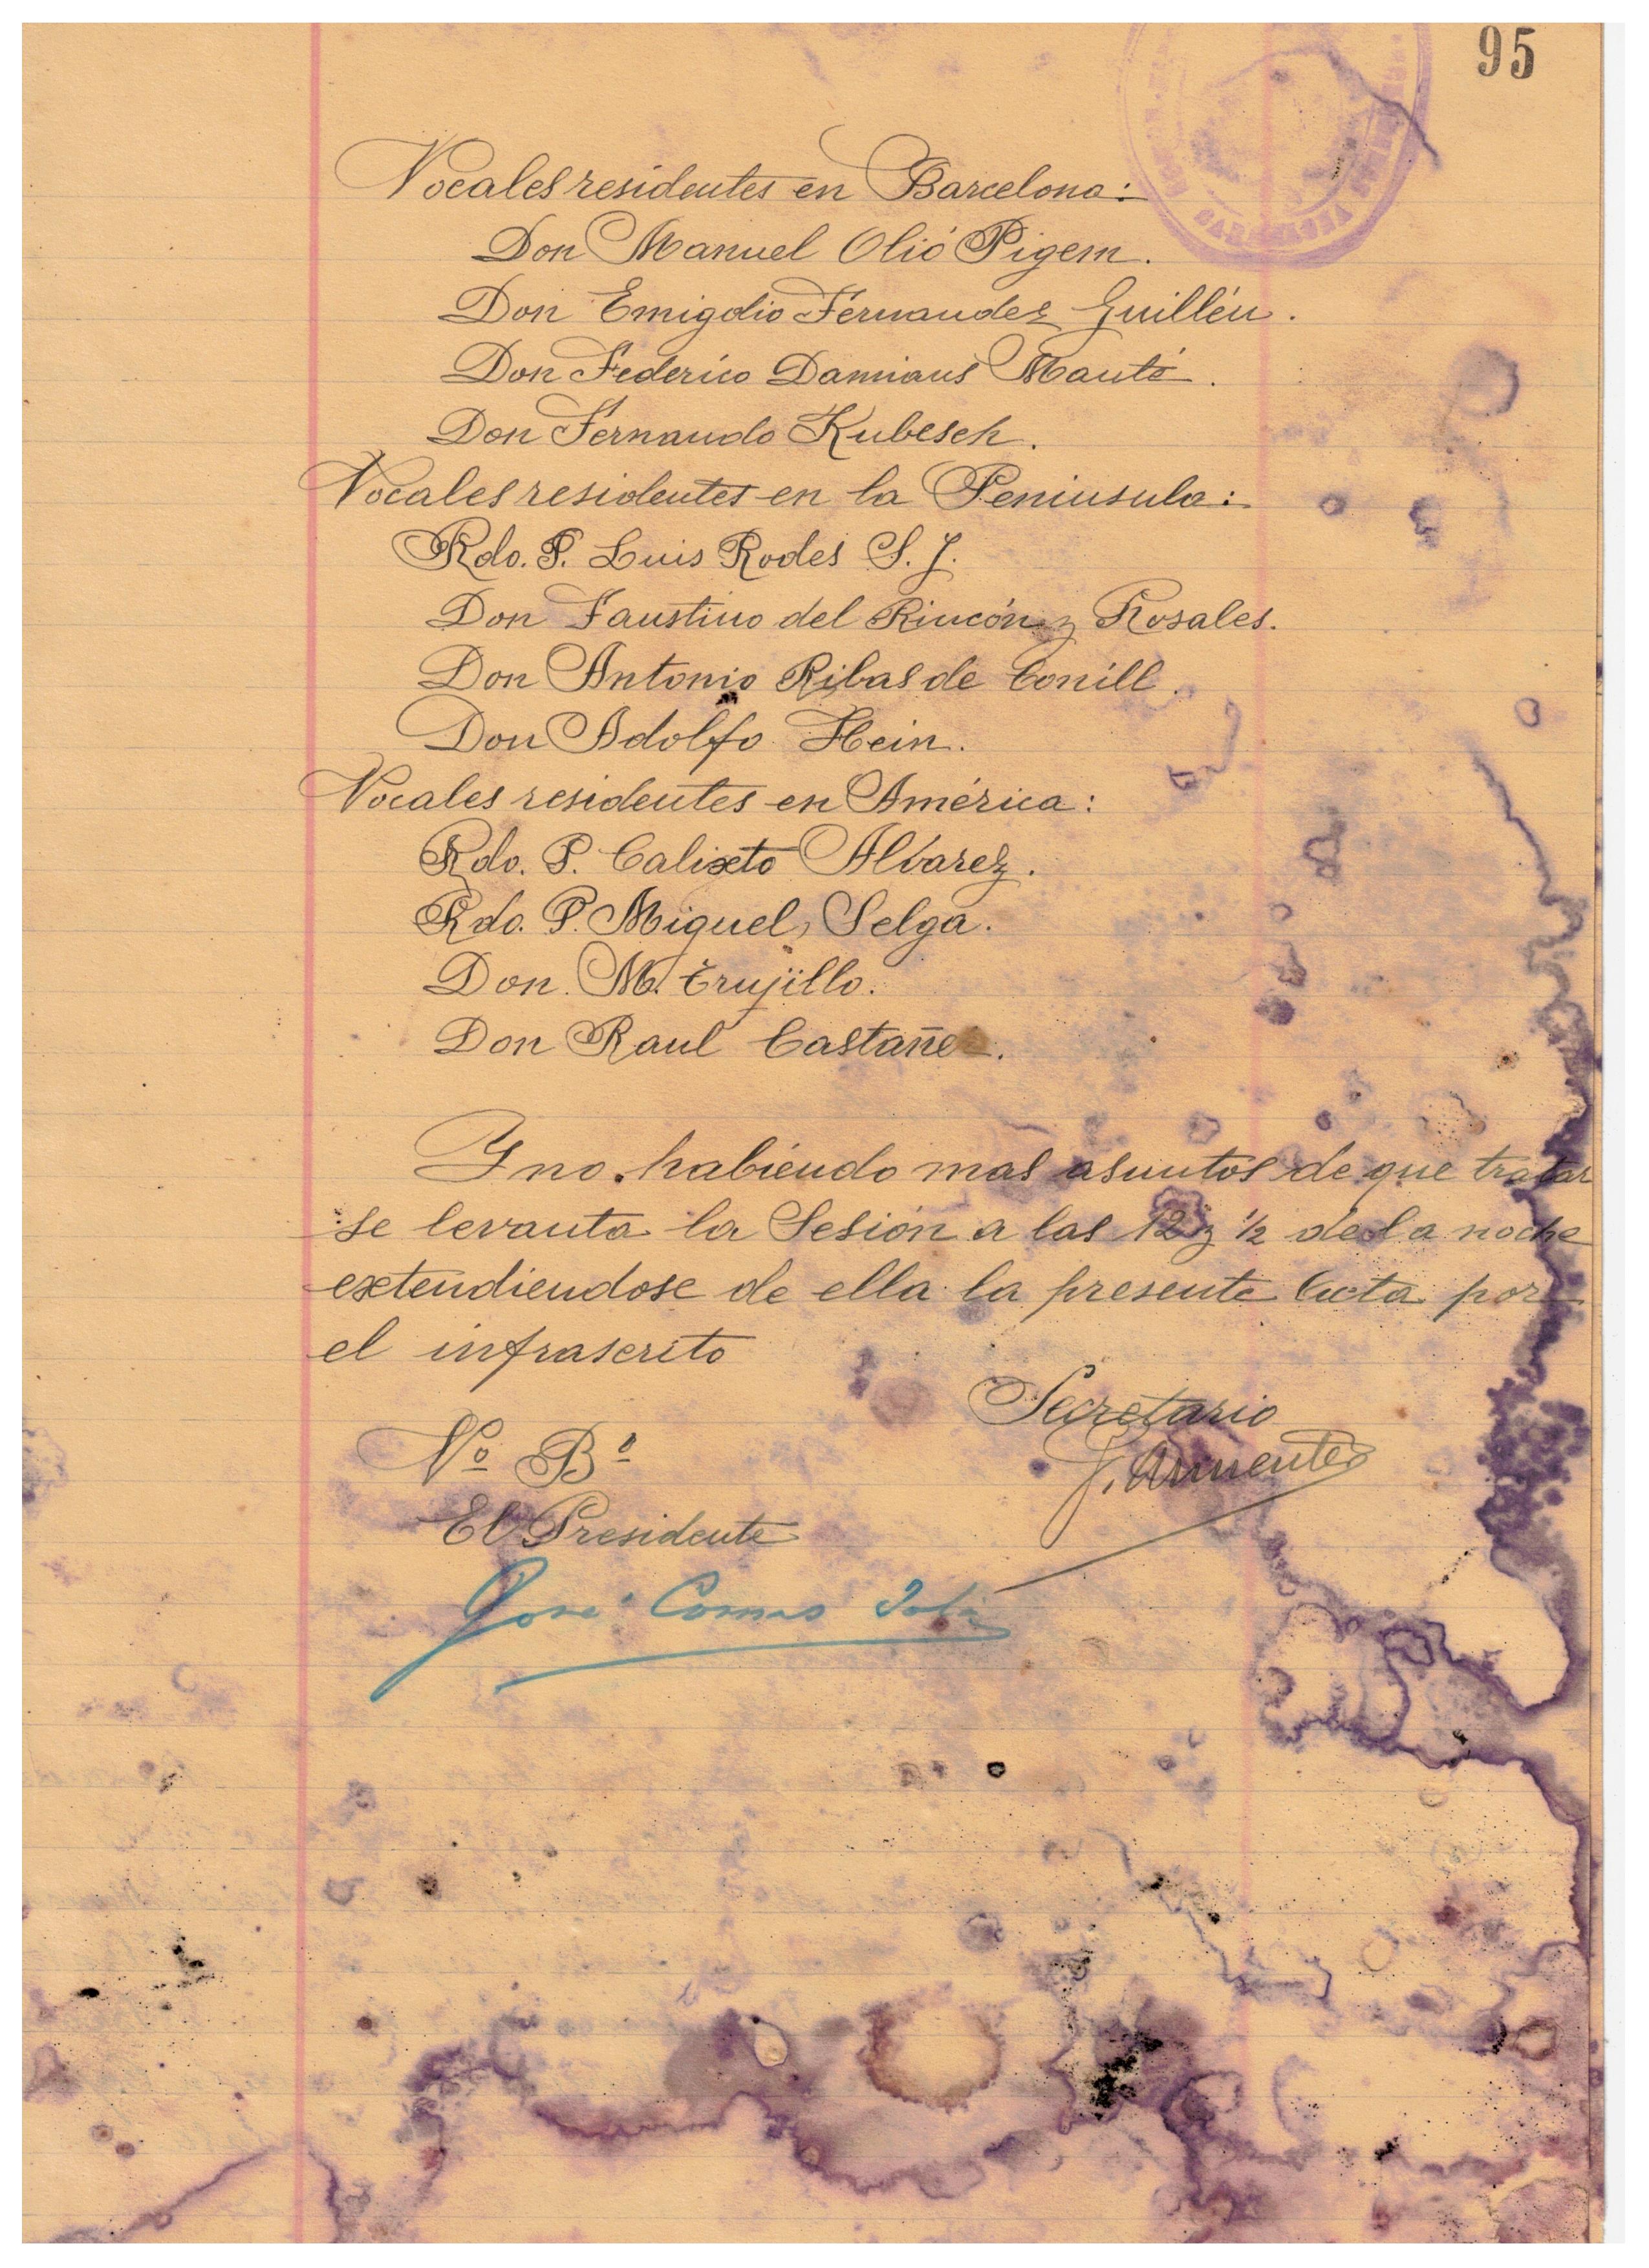 95
Vocales residentes en Barcelona:
Don Manuel Olió Pigem.
Don Emigdio Fernandez Guillén.
Don Federico Damians Manté.
Don Fernando Kubesch.
Vocales residentes en la Peninsula:
Rdo. P. Luis Rodes S. J.
Don Faustino del Rincón y Rosales.
Don Antonio Ribas de Conill.
Don Adolfo Hein.
Vocales residentes en América:
Rdo. P. Calixto Alvarez.
Rdo. P. Miguel Selga.
Don M. Trujillo.
Don Raul Castañe.
Y no habiendo mas asuntos de que tratar
se levanta la Sesión a las 12 y ½ de la noche
extendiendose de ella la presente Acta por
el infrascrito
Secretario
Vº Bº
J. Armenter
El Presidente
José Comas Solá